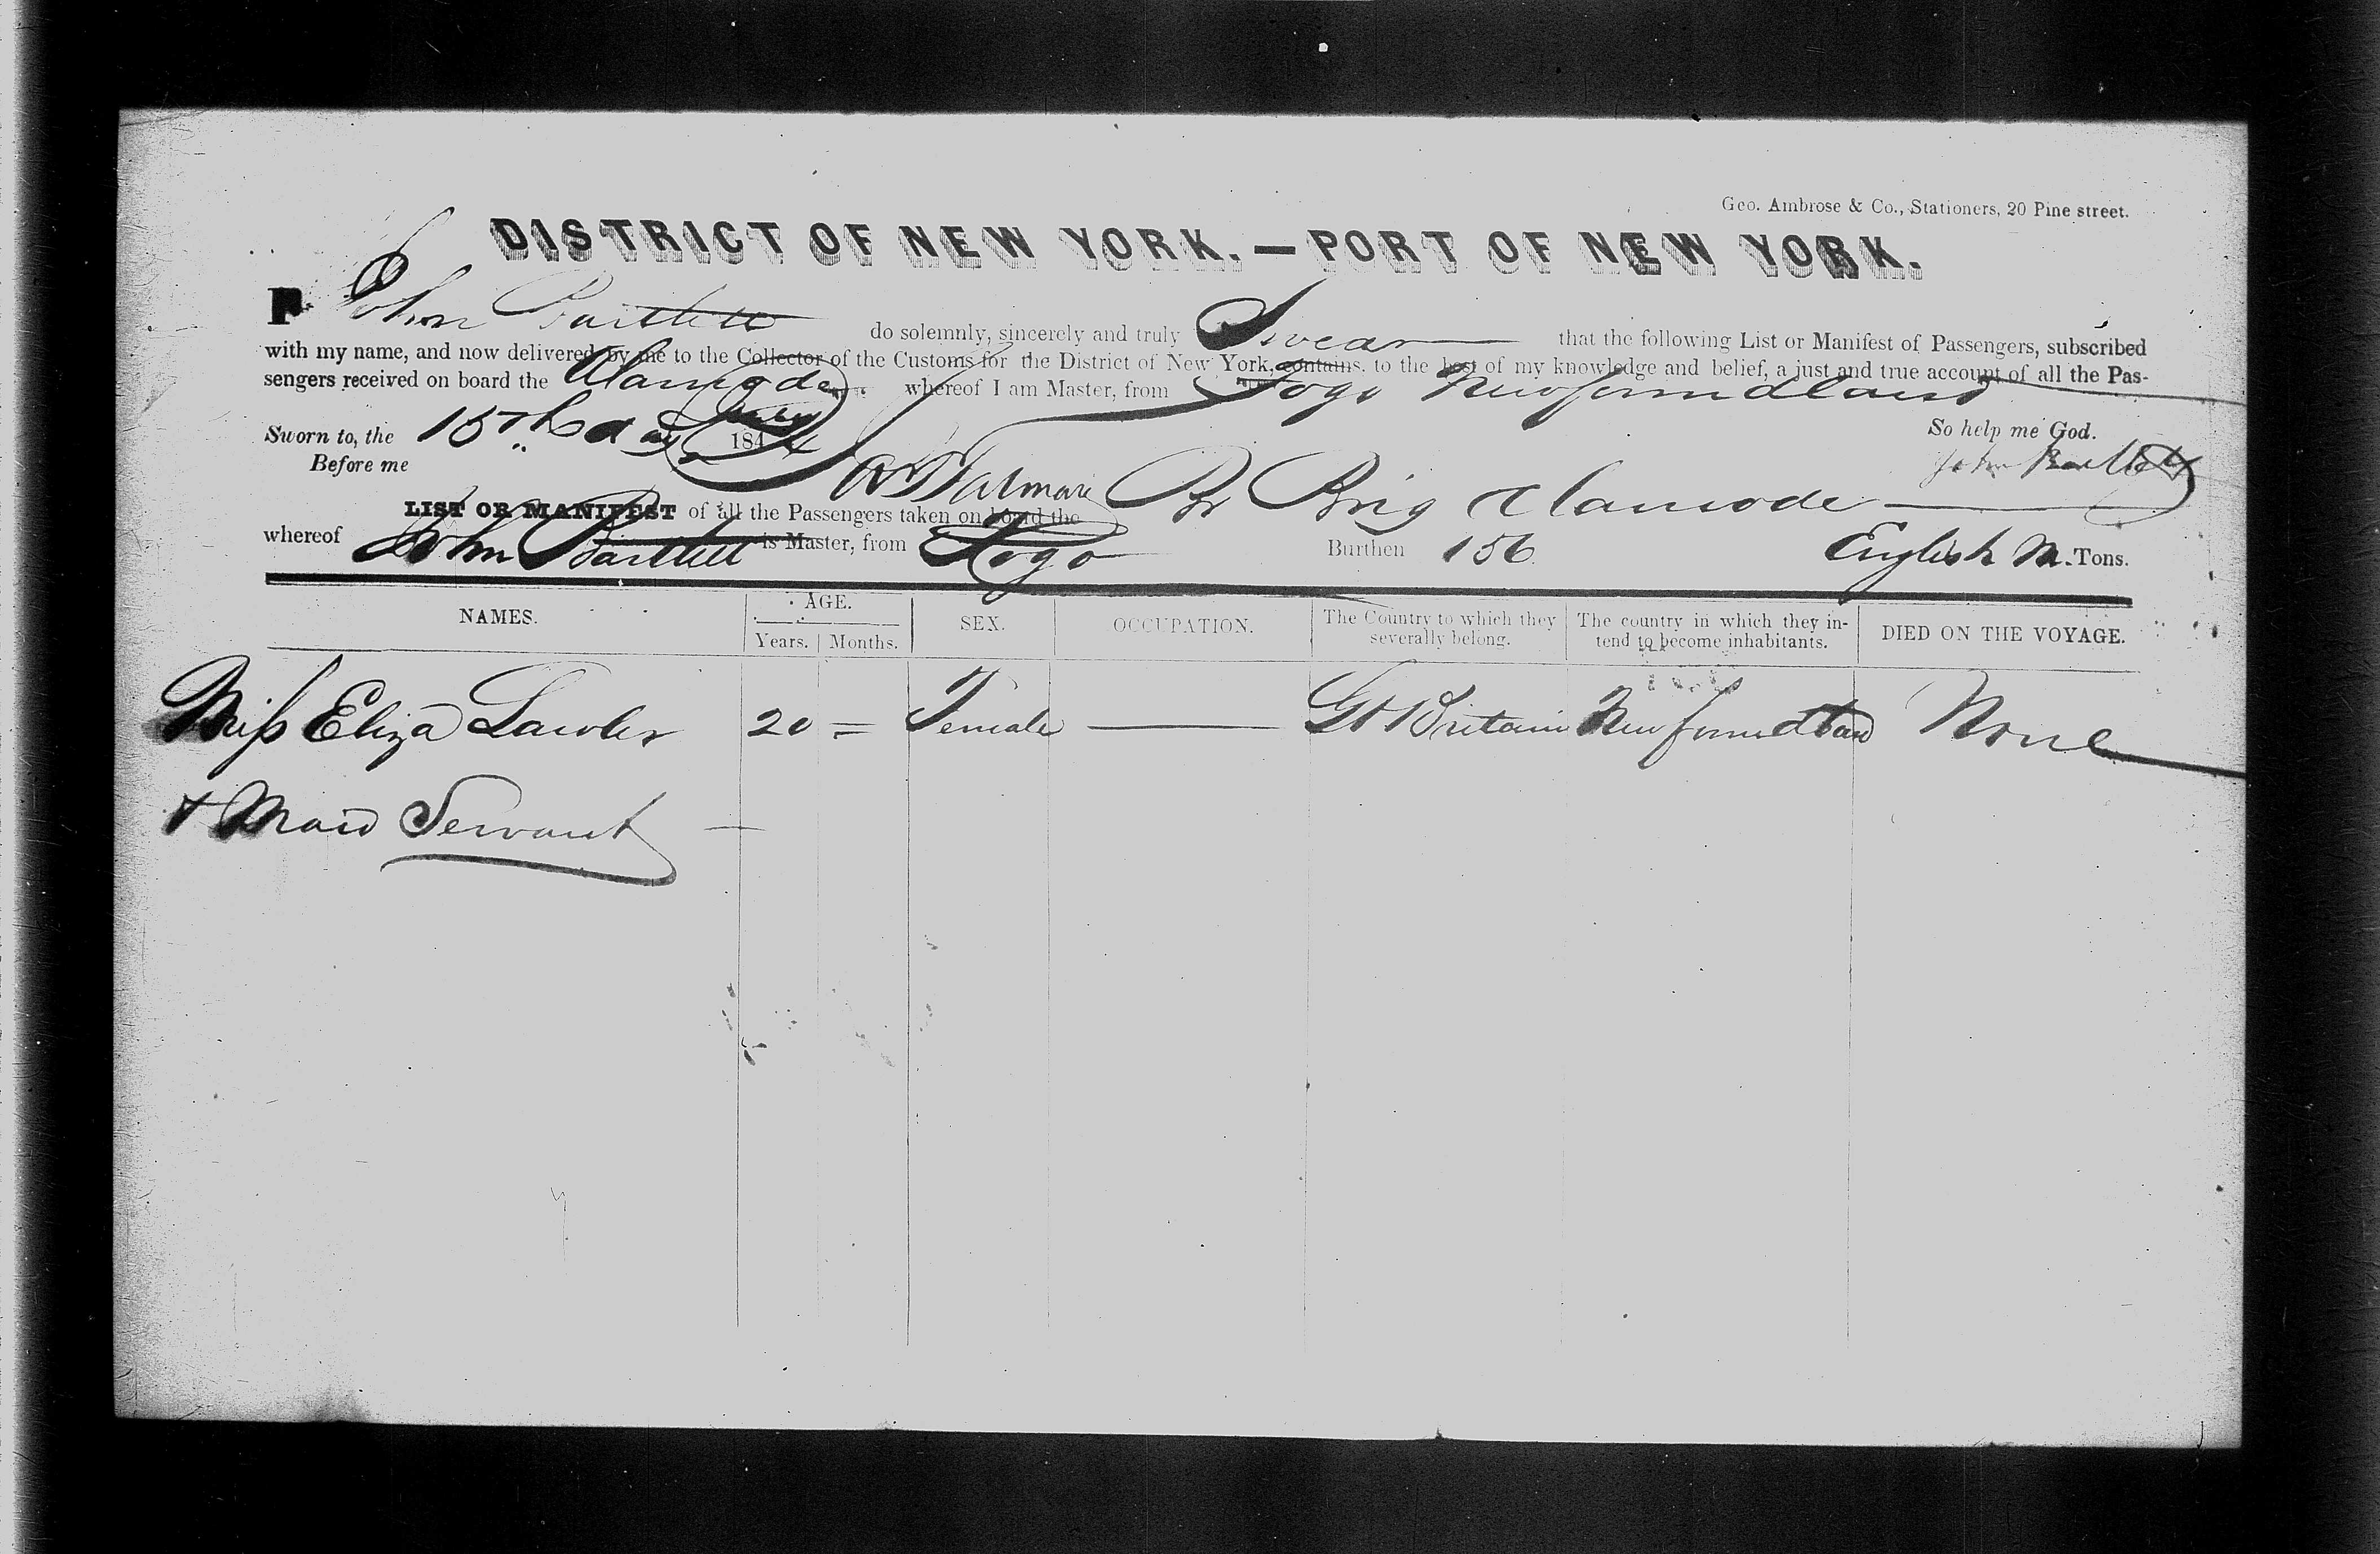 Geo. Ambrose & Co., Stationers, 20 Pine street.
DISTRICT OF NEW YORK.—PORT OF NEW YORK.
I, John Bartlett do solemnly, sincerely and truly Swear that the following List or Manifest of Passengers, subscribed
with my name, and now delivered by me to the Collector of the Customs for the District of New York, contains, to the best of my knowledge and belief, a just and true account of all the Pas-
sengers received on board the Alamode whereof I am Master, from Fogo Newfoundland
Sworn to, the 15th day 184 So help me God.
Before me John Bartlett
LIST OR MANIFEST of all the Passengers taken on board the Br Brig Alamode
whereof John Bartlett is Master, from Fogo Burthen 156 English M. Tons.
NAMES. AGE. Years. Months. SEX. OCCUPATION. The Country to which they severally belong. The country in which they in- tend to become inhabitants. DIED ON THE VOYAGE.
Miss Eliza Lawler 20 = Female — Gt Britain Newfoundland None
+ Maid Servant —